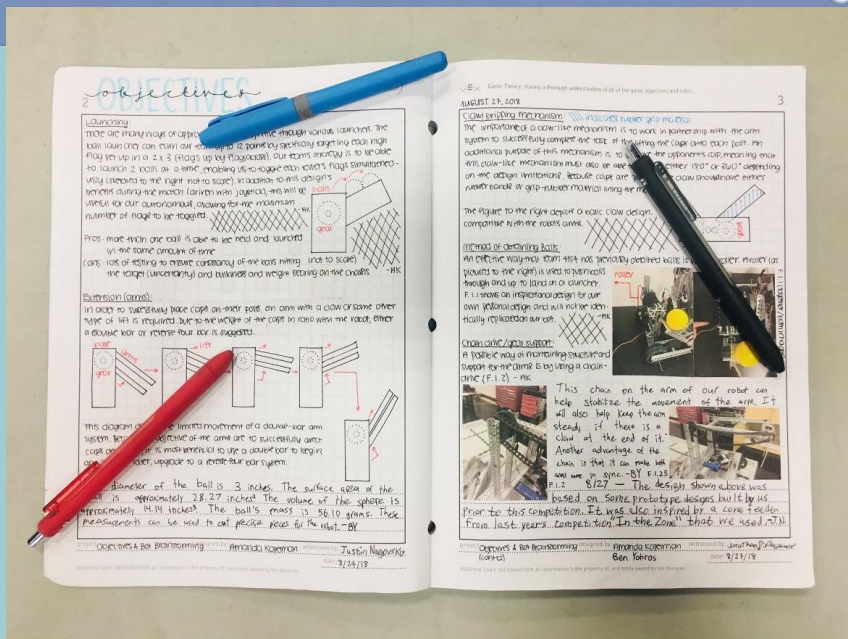 2
OBJECTIVES
objectives
Launching:
There are many ways of through various launchers. The
ball launcher can earn our up to 12 points by specifically targeting each high
flag set up in a 2 x 3 (flags up by flags across). Our team's strategy is to be able
to launch 2 balls at a time, enabling us to toggle each tower's flags simultaneous-
ly (sketched to the right not to scale). In addition to this design's
benefits during the match (driven with joystick), this will be
useful for our autonomous, allowing for the maximum
number of flags to be toggled.
-AK
balls
gear
Pros: more than one ball is able to be held and launched
in the same amount of time
Cons: lots of testing to ensure consistency of the balls hitting
the target (uncertainty) and bulkiness and weight bearing on the chassis
(not to scale)
-AK
Extension (arms):
In order to successfully place caps on their posts, an arm with a claw or some other
type of lift is required. Due to the weight of the caps in ratio with the robot, either
a double bar or reverse four bar is suggested.
base
arms
gear
lift
This diagram limited movement of a double-bar arm
system. objective of the arms are to successfully
caps is most beneficial to use a double bar to begin
later, upgrade to a reverse four bar system.
diameter of the ball is 3 inches. The surface area of the
ball is approximately 28.27 inches² The volume of the sphere is
approximately 14.14 inches³. The ball's mass is 56.10 grams. These
measurements can be used to cut precise pieces for the robot. -BY
Objectives & Bot Brainstorming
Amanda Kogelman
witnessed by
Justin
date
8/24/18
PROPRIETARY INFORMATION all information is the property of, and solely owned by the
VEX
Game Theory: Having a thorough understanding of all of the game objectives and rules.
3
AUGUST 27, 2018
Claw Gripping Mechanism:
indicates rubber grip material
The importance of a claw-like mechanism is to work in partnership with the arm
system to successfully complete the task of lifting the caps onto each post. An
additional purpose of this mechanism is to the opponent's cap, meaning that
this claw-like mechanism must also be able either 180° or 360° depending
on the design limitations. Because caps are claw should have either
rubber bands or grip-rubber material lining the
The figure to the right depicts a basic claw design
compatible with the robot's arms.
-AK
Method of Obtaining Balls:
An effective way that team 1784 has previously obtained balls is roller. A roller (as
pictured to the right) is used to push balls
through and up to land on a launcher.
F.1.1 shows an inspirational design for our
own personal design and will not be iden-
tically replicated on our bot.
-AK
roller
Chain drive/gear support:
A possible way of maintaining structure and
support for the arms is by using a chain-
drive (F.1.2) -AK
This chain on the arm of our robot can
help stabilize the movement of the arm. It
will also help keep the arm
steady if there is a
claw at the end of it.
Another advantage of the
chain is that it can make both
arms move in sync. -BY
F.1.25
F.1.2
8/27 — The design shown above was
based on some prototype designs built by us
prior to this competition. It was also inspired by a cone feeder
from last years competition "In the Zone" that we used. -J.N.
project
Objectives & Bot Brainstorming
(cont'd)
designed by
Amanda Kogelman
Ben
witnessed by
date
8/27/18
PROPRIETARY INFORMATION all information is the property of, and solely owned by the Designer.